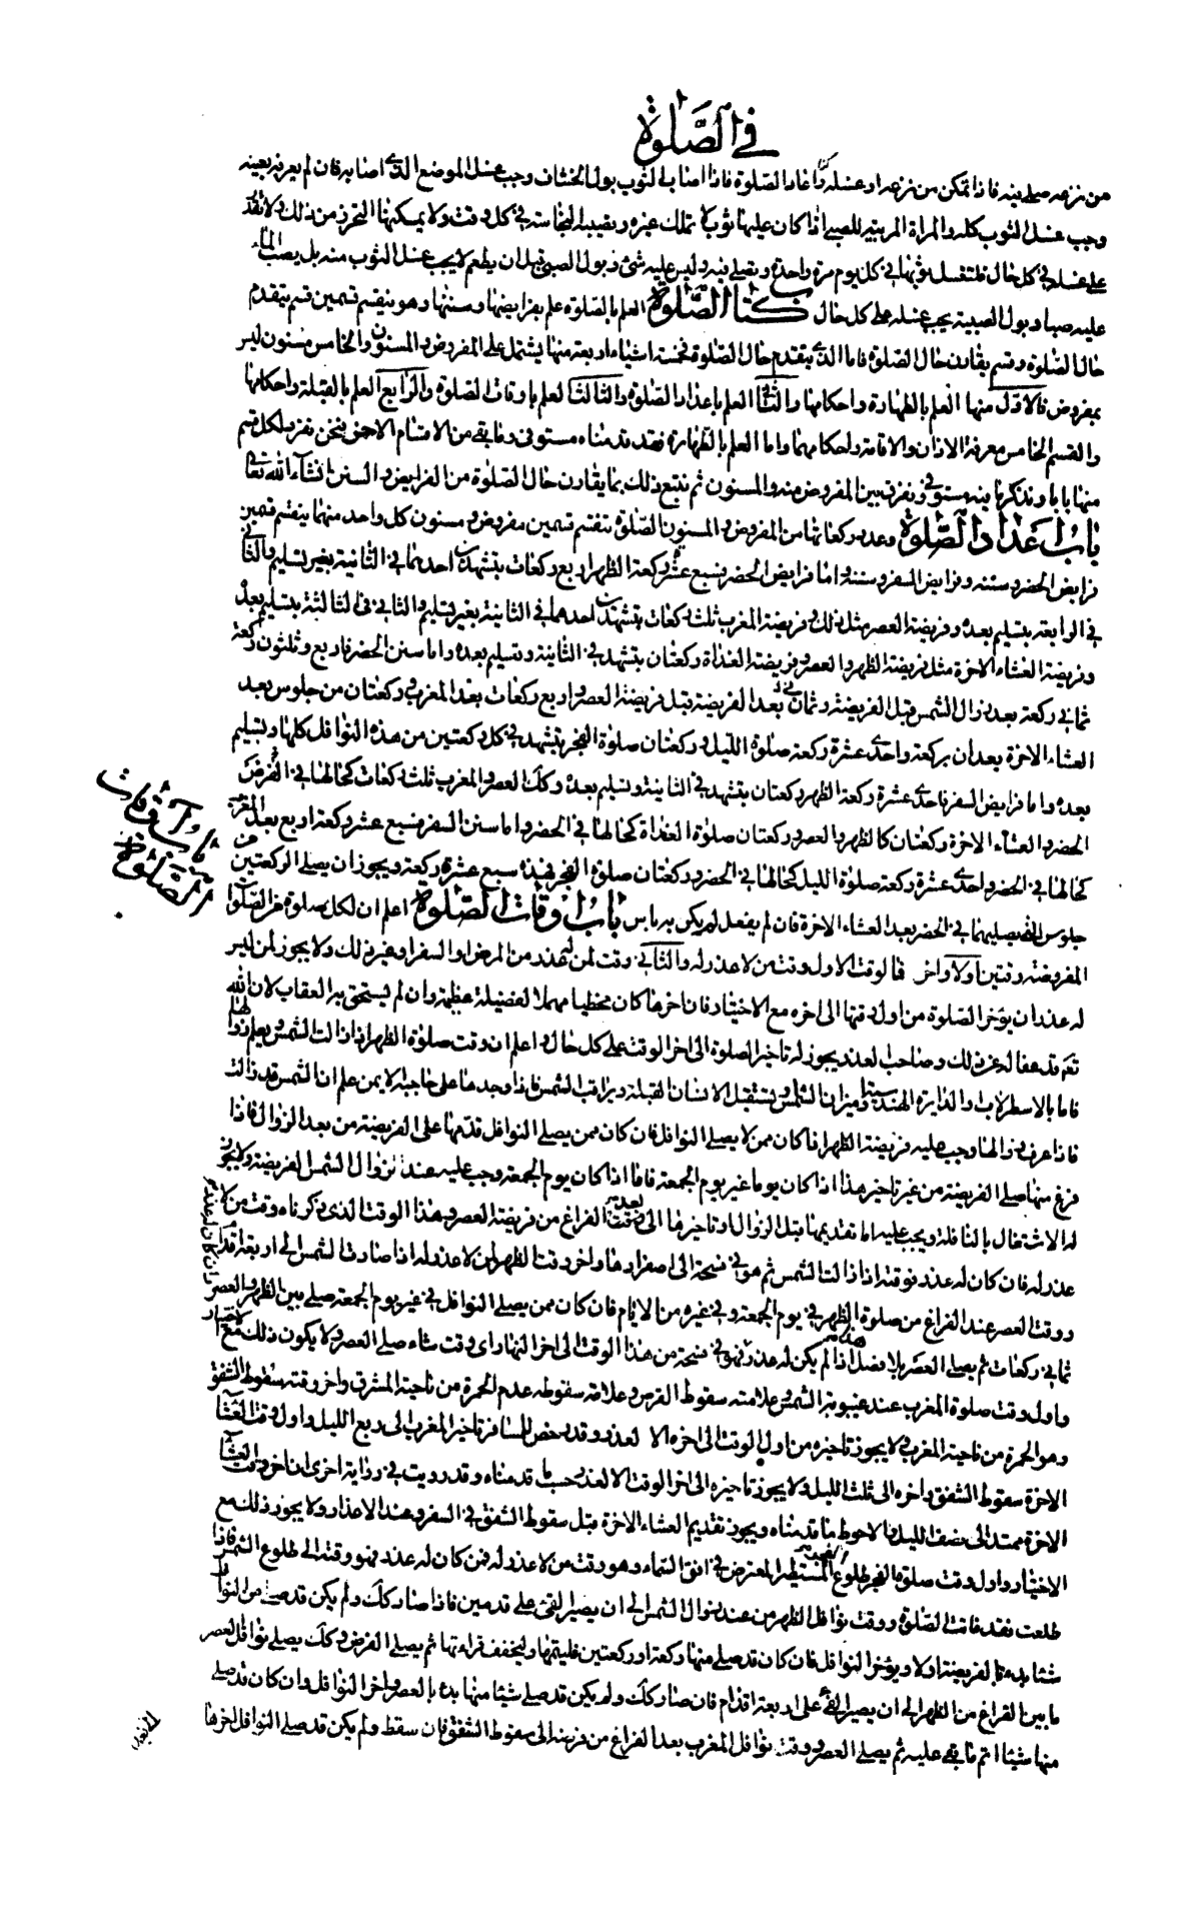 في الصلوة
من نزعه صلى فيه فاذا تمكن من نزعه او غسله نزعه واعاد الصلوة فاذا اصاب الثوب بول الخشاف وجب غسل الموضع الذى اصابه فان لم يعرفه بعينه
وجب غسل الثوب كله والمراة المربية للصبى اذا كان عليها ثوب لا تملك غيره وتصيبه النجاسة فى كل وقت ولا يمكنها التحرز من ذلك ولا تقدر
على غسله فى كل حال فلتغسل ثوبها فى كل يوم مرة واحدة وتصلى فيه وليس عليه شئ وبول الصبى قبل ان يطعم لا يجب غسل الثوب منه بل يصب الماء
عليه صبا وبول الصبية يجب غسله على كل حال كتاب الصلوة العلم بالصلوة علم بفرايضها وسننها وهو ينقسم قسمين قسم يتقدم
حال الصلوة وقسم يقارن حال الصلوة فاما الذى يتقدم حال الصلوة فخمسة اشياء اربعة منها يشتمل على المفروض والمسنون والخامس مسنون ليس
بمفروض فالاول منها العلم بالطهارة واحكامها والثانى العلم باعداد الصلوة والثالث العلم باوقات الصلوة والرابع العلم بالقبلة واحكامها
والقسم الخامس معرفة الاذان والاقامة واحكامهما واما العلم بالطهارة فقد قدمناه مستوفى وما بقى من الاقسام الاخر فنحن نفرد لكل قسم
منها بابا ونذكر ما فيه مستوفى ونفرق بين المفروض منه والمسنون ثم نتبع ذلك بما يقارن حال الصلوة من الفرايض والسنن انشاء الله تعالى
باب اعداد الصلوة وعدد ركعاتها من المفروض والمسنون الصلوة تنقسم قسمين مفروض ومسنون كل واحد منهما ينقسم قسمين
فرايض الحضر وسننه وفرايض السفر وسننه واما فرايض الحضر فسبع عشرة ركعة الظهر اربع ركعات بتشهدين احدهما فى الثانية بغير تسليم والثانى
فى الرابعة بتسليم بعده وفريضة العصر مثل ذلك وفريضة المغرب ثلث ركعات بتشهدين احدهما فى الثانية بغير تسليم والثانى فى الثالثة بتسليم بعده
وفريضة العشاء الاخرة مثل فريضة الظهر والعصر وفريضة الغداة ركعتان بتشهد فى الثانية وتسليم بعده واما سنن الحضر فاربع وثلثون ركعة
ثمانى ركعة بعد زوال الشمس قبل الفريضة وثمان بعد الفريضة قبل فريضة العصر واربع ركعات بعد المغرب وركعتان من جلوس بعد
العشاء الاخرة يعدان بركعة واحدى عشرة ركعة صلوة الليل وركعتان صلوة الفجر بتشهد فى كل ركعتين من هذه النوافل كلها وتسليم
بعده واما فرايض السفر فاحدى عشرة ركعة الظهر ركعتان بتشهد فى الثانية وتسليم بعده وكك العصر والمغرب ثلث ركعات كحالها فى
الحضر والعشاء الاخرة ركعتان كالظهر والعصر وركعتان صلوة الغداة كحالها فى الحضر واما سنن السفر فسبع عشر ركعة اربع بعد المغرب
كحالها فى الحضر واحدى عشرة ركعة صلوة الليل كحالها فى الحضر وركعتان صلوة الفجر فهذه سبع عشرة ركعة ويجوز ان يصلى الركعتين من
جلوس التى يصليهما فى الحضر بعد العشاء الاخرة فان لم يفعل لم يكن به باس باب اوقات الصلوة اعلم ان لكل صلوة من الصلوات
المفروضة وقتين اولا واخر فالوقت الاول وقت من لا عذر له والثانى وقت لمن له عذر من المرض او السفر او غير ذلك ولا يجوز لمن ليس
له عذر ان يؤخر الصلوة من اول وقتها الى اخره مع الاختيار فان اخرها كان مخطيا مهملا لفضيلة عظيمة وان لم يستحق به العقاب لان الله
تعالى قد عفا له عن ذلك وصاحب العذر يجوز له تاخير الصلوة الى اخر الوقت على كل حال واعلم ان وقت صلوة الظهر اذا زالت الشمس ويعلم زوالها
اما بالاسطرلاب والدايرة الهندسية وميزان الشمس او يستقبل الانسان القبلة ويراقب الشمس فاذا وجدها على حاجبه الايمن علم ان الشمس قد زالت
فاذا عرف زوالها وجب عليه فريضة الظهر اذا كان ممن لا يصلى النوافل فان كان ممن يصلى النوافل قدمها على الفريضة من بعد الزوال فاذا
فرغ منها صلى الفريضة من غير تاخير هذا اذا كان يوما غير يوم الجمعة فاما اذا كان يوم الجمعة وجب عليه عند زوال الشمس الفريضة ولا يجوز
له الاشتغال بالنافلة ويجب عليه اما تقديمها قبل الزوال او تاخيرها الى بعد الفراغ من فريضة العصر وهذا الوقت الذى ذكرناه وقت من لا
عذر له فان كان له عذر فوقته اذا زالت الشمس ثم هو فى فسحة الى اصفرارها واخر وقت الظهر لمن لا عذر له اذا صارت الشمس الى اربعة اقدام
ووقت العصر عند الفراغ من صلوة الظهر فى يوم الجمعة وفى غيره من الايام فان كان ممن يصلى النوافل فى غير يوم الجمعة صلى بين الظهر والعصر
ثمانى ركعات ثم يصلى العصر بلا فصل هذا اذا لم يكن له عذر فهو فى فسحة من هذا الوقت الى اخر النهار اى وقت شاء صلى العصر ولا يكون ذلك مع الاختيار
واول وقت صلوة المغرب عند غيبوبة الشمس وعلامته سقوط القرص وعلامة سقوطه عدم الحمرة من ناحية المشرق واخر وقته سقوط الشفق
وهو الحمرة من ناحية المغرب ولا يجوز تاخيره من اول الوقت الى اخره الا لعذر وقد رخص للمسافر تاخير المغرب الى ربع الليل واول وقت العشاء
الاخرة سقوط الشفق واخره الى ثلث الليل ولا يجوز تاخيره الى اخر الوقت الا لعذر حسب ما قدمناه وقد رويت فى رواية اخرى ان اخر وقت العشاء
الاخرة ممتد الى نصف الليل والاحوط ما قدمناه ويجوز تقديم العشاء الاخرة قبل سقوط الشفق فى السفر وعند الاعذار ولا يجوز ذلك مع
الاختيار واول وقت صلوة الفجر طلوع الفجر المستطير المعترض فى افق السماء وهو وقت من لا عذر له فمن كان له عذر فهو وقته الى طلوع الشمس فاذا
طلعت فقد فاتت الصلوة ووقت نوافل الظهر من عند زوال الشمس الى ان يصير الفئ على قدمين فاذا صار كك ولم يكن قد صلى من النوافل
شيئا بدء بالفريضة اولا ويؤخر النوافل فان كان قد صلى منها ركعة او ركعتين فليتمها وليخفف قراءتها ثم يصلى الفرض وكك يصلى نوافل العصر
ما بين الفراغ من الظهر الى ان يصير الفئ على اربعة اقدام فان صار كك ولم يكن قد صلى شيئا منها بدء بالعصر واخر النوافل وان كان قد صلى
منها شيئا اتم ما بقى عليه ثم يصلى العصر ووقت نوافل المغرب بعد الفراغ من فريضة الى سقوط الشفق فان سقط ولم يكن قد صلى النوافل اخرها
باب اوقات
الصلوة
وان كان له عذر